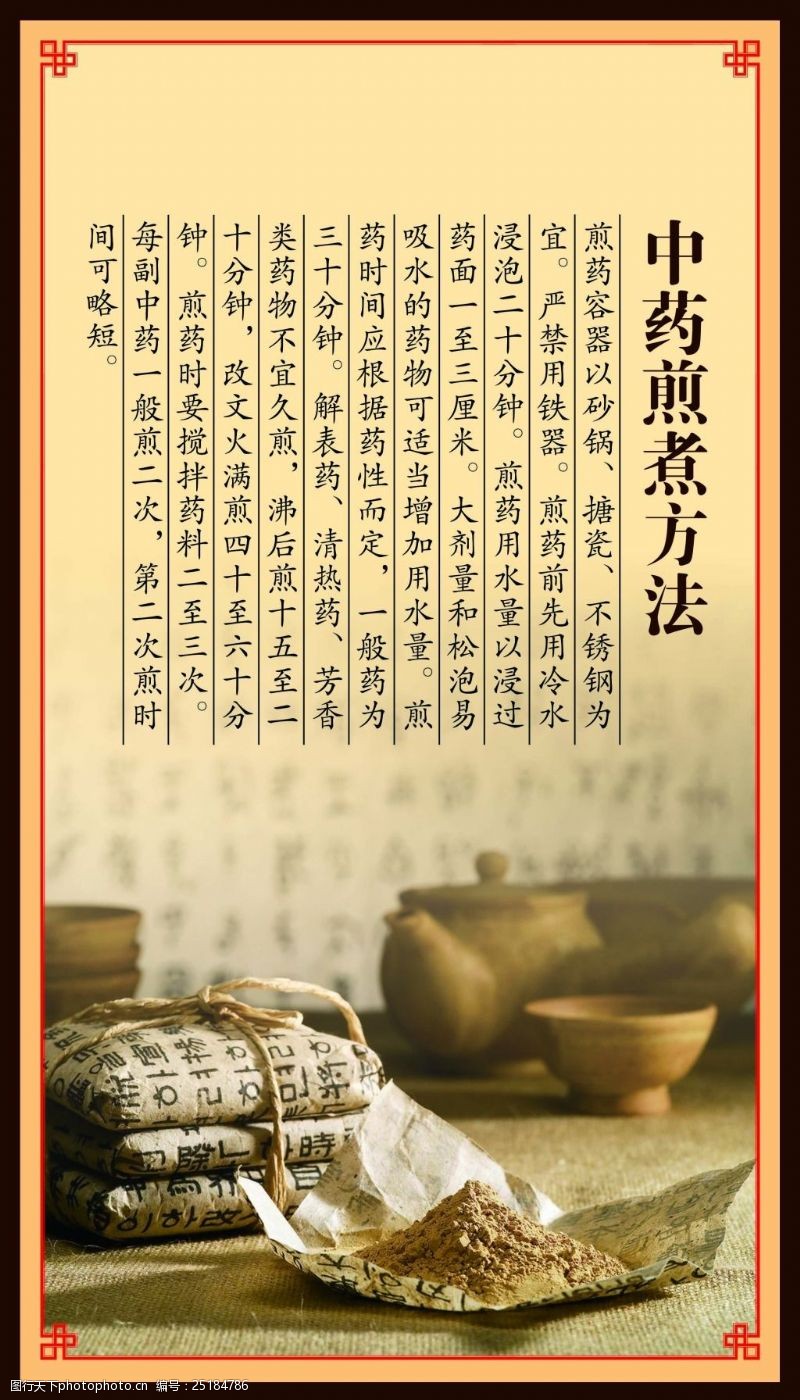 中药煎煮方法
煎药容器以砂锅、搪瓷、不锈钢为
宜。严禁用铁器。煎药前先用冷水
浸泡二十分钟。煎药用水量以浸过
药面一至三厘米。大剂量和松泡易
吸水的药物可适当增加用水量。煎
药时间应根据药性而定，一般药为
三十分钟。解表药、清热药、芳香
类药物不宜久煎，沸后煎十五至二
十分钟，改文火满煎四十至六十分
钟。煎药时要搅拌药料二至三次。
每副中药一般煎二次，第二次煎时
间可略短。
图行天下photophoto.cn 编号：25184786